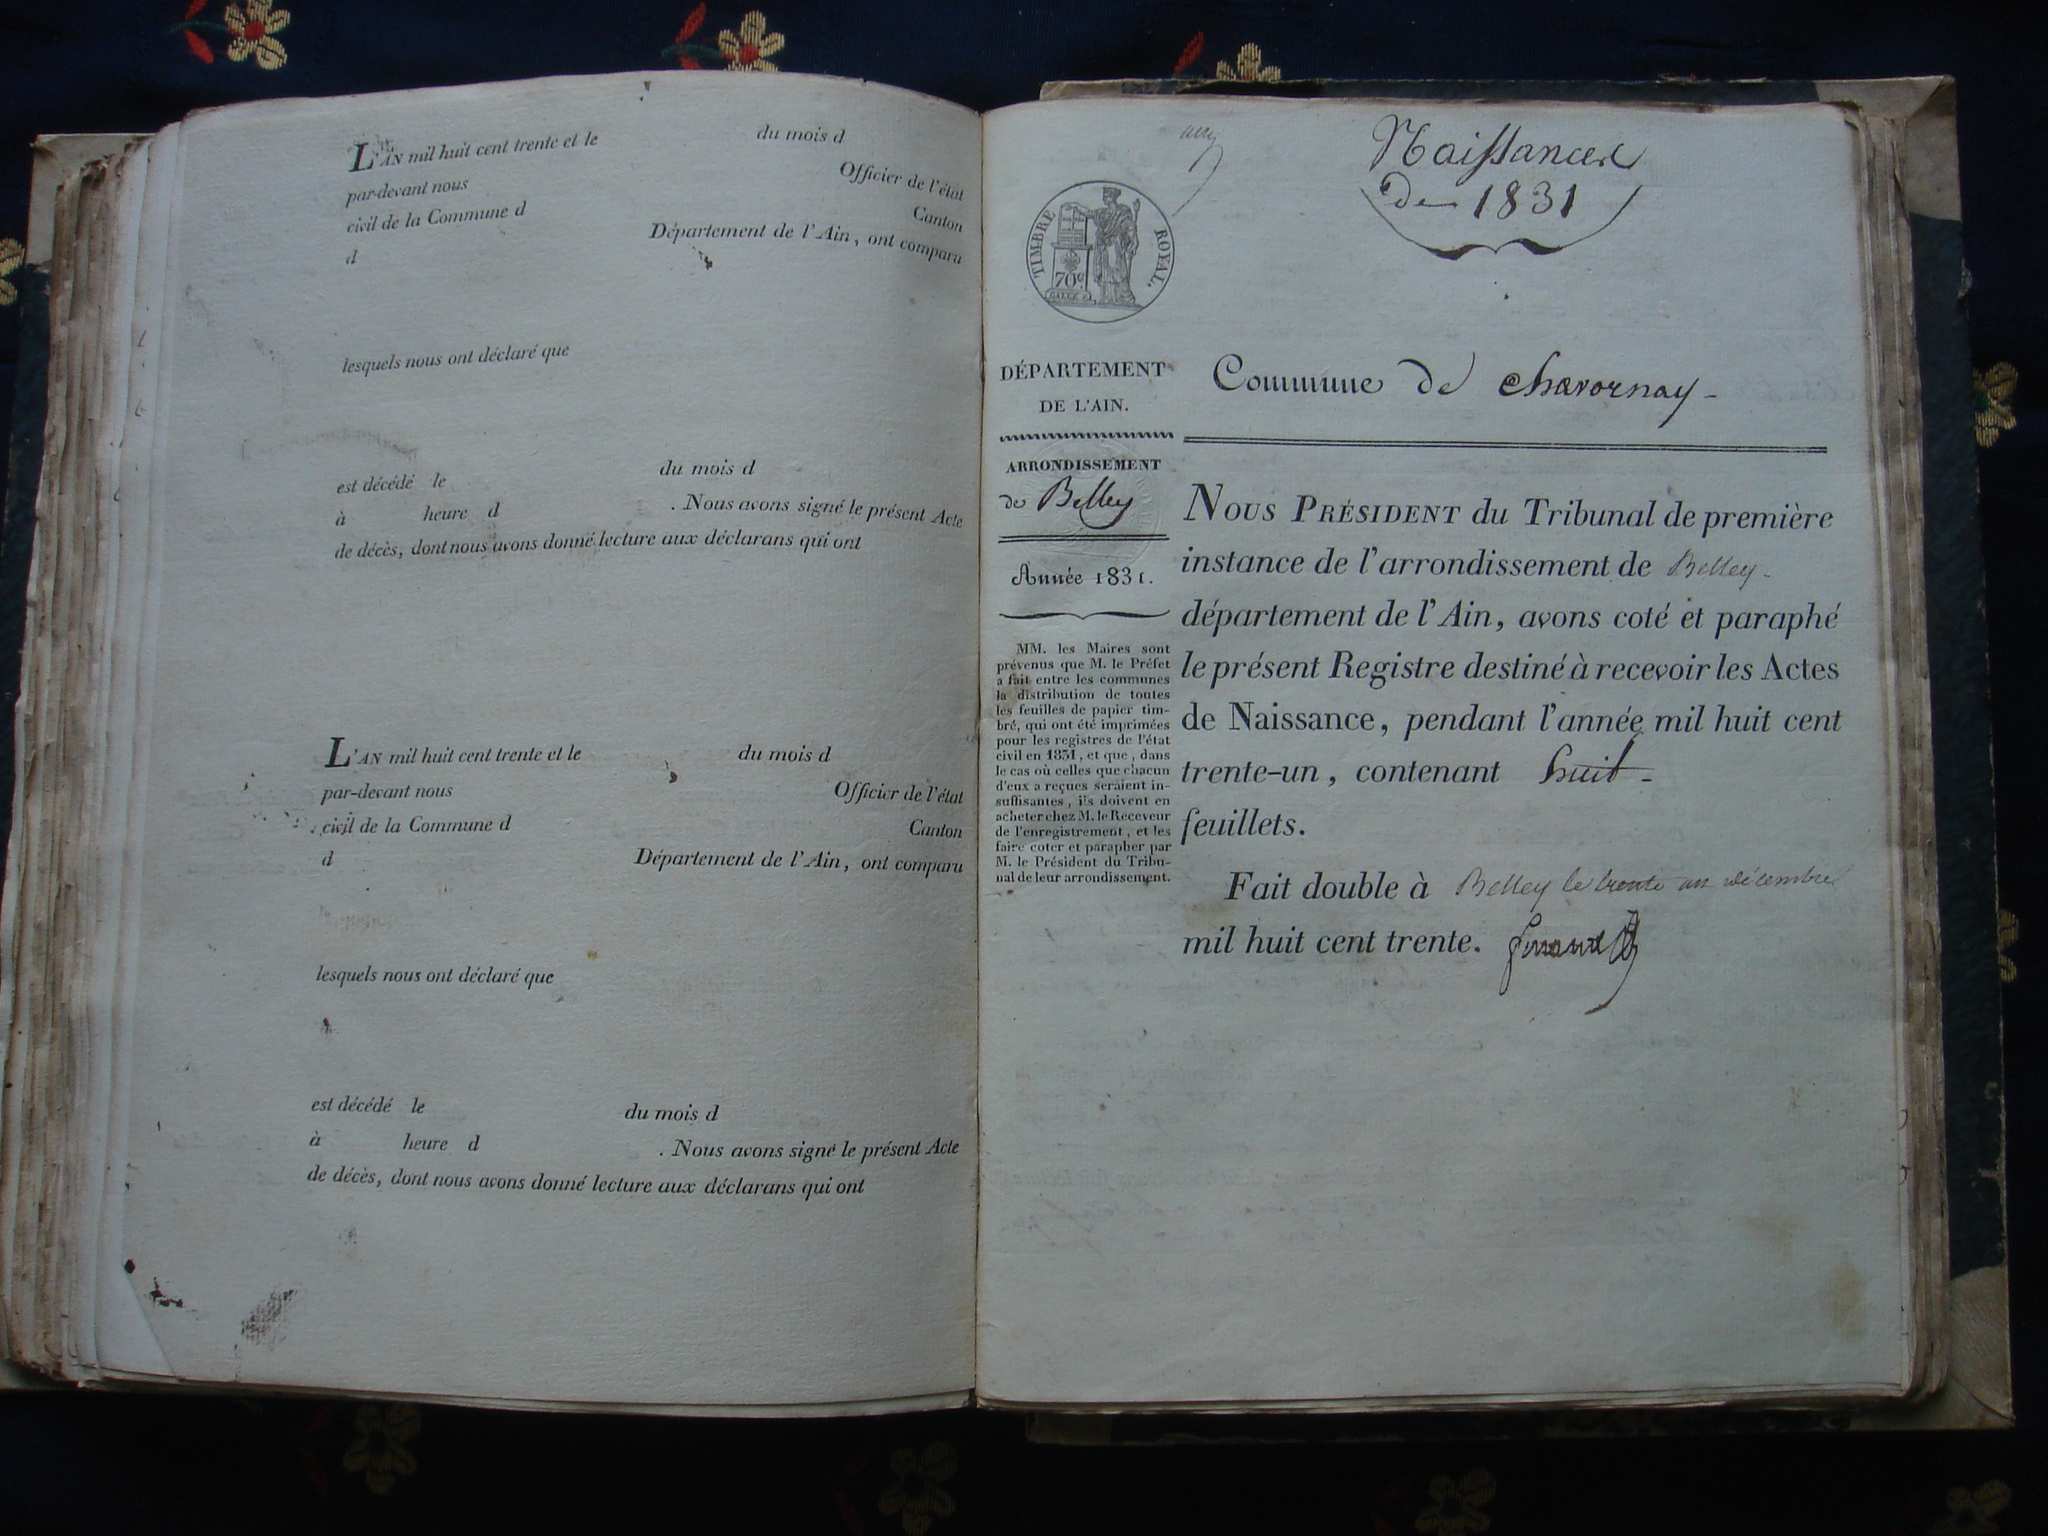 L'AN mil huit cent trente et le du mois d
par-devant nous Officier de l'état
civil de la Commune d Canton
d Département de l'Ain, ont comparu
lesquels nous ont déclaré que
est décédé le du mois d
à heure d . Nous avons signé le présent Acte
de décès, dont nous avons donné lecture aux déclarans qui ont
L'AN mil huit cent trente et le du mois d
par-devant nous Officier de l'état
civil de la Commune d Canton
d Département de l'Ain, ont comparu
lesquels nous ont déclaré que
est décédé le du mois d
à heure d . Nous avons signé le présent Acte
de décès, dont nous avons donné lecture aux déclarans qui ont
Naissances
de 1831
TIMBRE ROYAL.
70c
DÉPARTEMENT
DE L'AIN.
Commune de chavornay
ARRONDISSEMENT
de Belley
Année 1831.
MM. les Maires sont
prévenus que M. le Préfet
a fait entre les communes
la distribution de toutes
les feuilles de papier tim-
bré, qui ont été imprimées
pour les registres de l'état
civil en 1831, et que, dans
le cas où celles que chacun
d'eux a reçues seraient in-
suffisantes, ils doivent en
acheter chez M. le Receveur
de l'enregistrement, et les
faire coter et parapher par
M. le Président du Tribu-
nal de leur arrondissement.
NOUS PRÉSIDENT du Tribunal de première
instance de l'arrondissement de Belley
département de l'Ain, avons coté et paraphé
le présent Registre destiné à recevoir les Actes
de Naissance, pendant l'année mil huit cent
trente-un, contenant huit
feuillets.
Fait double à Belley le trente un décembre
mil huit cent trente.